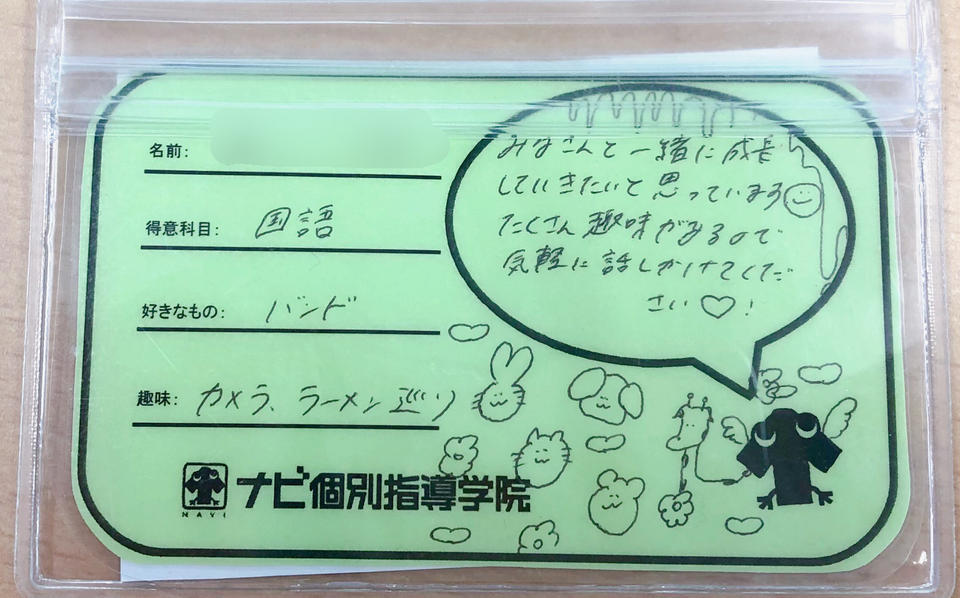 名前:
得意科目: 国語
好きなもの: バンド
趣味: カメラ、ラーメン巡り
みなさんと一緒に成長
していきたいと思っています
たくさん趣味があるので
気軽に話しかけてくだ
さい♡!
NAVI
ナビ個別指導学院